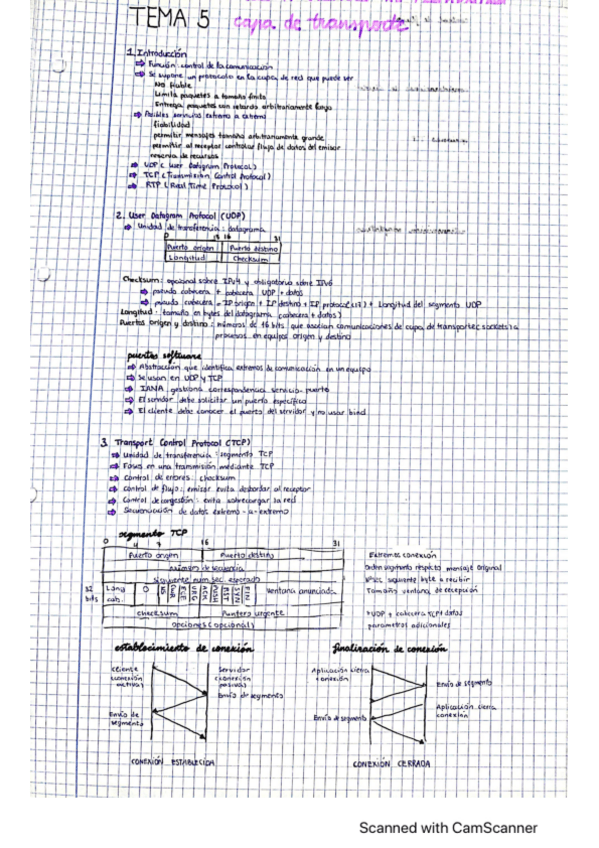 TEMA 5 capa de transporte
1. Introducción
⇒ Función: control de la comunicación
⇒ Se supone un protocolo en la capa de red que puede ser
No fiable
Limita paquetes a tamaño finito
Entrega paquetes con retardo arbitrariamente largo
⇒ Posibles servicios extremo a extremo
fiabilidad
permitir mensajes tamaño arbitrariamente grande
permitir al receptor controlar flujo de datos del emisor
reserva de recursos
⇒ UDP (User Datagram Protocol)
⇒ TCP (Transmission Control Protocol)
⇒ RTP (Real Time Protocol)
2. User Datagram Protocol (UDP)
⇒ Unidad de transferencia: datagrama
0 15 16 31
Puerto origen Puerto destino
Longitud Checksum
Checksum: opcional sobre IPv4 y obligatorio sobre IPv6
⇒ pseudo cabecera + cabecera UDP + datos
⇒ pseudo cabecera = IP origen + IP destino + IP protocol (17) + Longitud del segmento UDP
Longitud: tamaño en bytes del datagrama (cabecera + datos)
Puertos origen y destino: números de 16 bits que asocian comunicaciones de capa de transporte (sockets) a
procesos en equipos origen y destino
puertos software
⇒ Abstracción que identifica extremos de comunicación en un equipo
⇒ Se usan en UDP y TCP
⇒ IANA gestiona correspondencia servicio-puerto
⇒ El servidor debe solicitar un puerto específico
⇒ El cliente debe conocer el puerto del servidor y no usar bind
3. Transport Control Protocol (TCP)
⇒ Unidad de transferencia: segmento TCP
⇒ Fases en una transmisión mediante TCP
⇒ Control de errores: checksum
⇒ Control de flujo: emisor evita desbordar al receptor
⇒ Control de congestión: evita sobrecargar la red
⇒ Secuenciación de datos extremo-a-extremo
segmento TCP
0 4 7 16 31
Puerto origen Puerto destino Extremos conexión
número de secuencia Orden segmento respecto mensaje original
Siguiente num. sec. esperado nºsec siguiente byte a recibir
32 bits Long cab. 0 NS CWR ECE URG ACK PUSH RST SYN FIN Ventana anunciada Tamaño ventana de recepción
checksum Puntero urgente UDP y cabecera TCP+datos
opciones (opcional) parametros adicionales
establecimiento de conexión finalización de conexión
Cliente (conexión activa) Servidor (conexión pasiva) Aplicación cierra conexión
Envío de segmento Envío de segmento
Envío de segmento Envío de segmento Aplicación cierra conexión
CONEXIÓN ESTABLECIDA CONEXIÓN CERRADA
Scanned with CamScanner